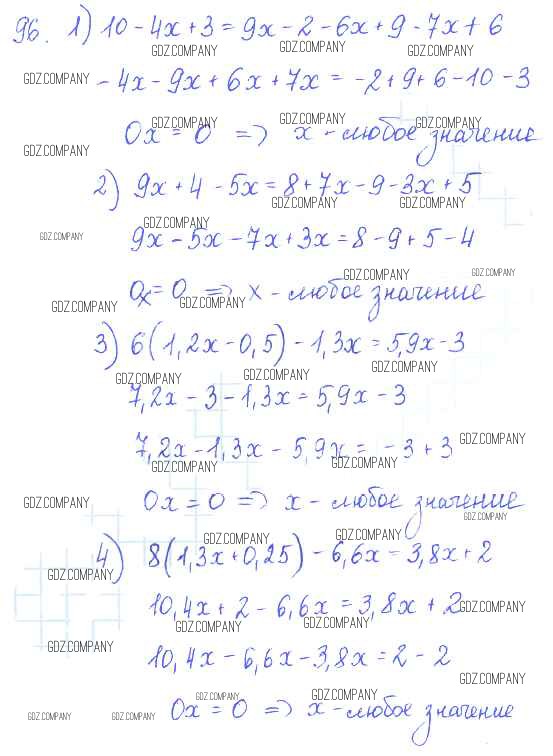 96. 1) 10 - 4x + 3 = 9x - 2 - 6x + 9 - 7x + 6
GDZ.COMPANY GDZ.COMPANY GDZ.COMPANY
GDZ.COMPANY - 4x - 9x + 6x + 7x = -2 + 9 + 6 - 10 - 3
GDZ.COMPANY GDZ.COMPANY GDZ.COMPANY
GDZ.COMPANY 0x = 0 => x - любое значение
2) 9x + 4 - 5x = 8 + 7x - 9 - 3x + 5
GDZ.COMPANY GDZ.COMPANY GDZ.COMPANY
GDZ.COMPANY 9x - 5x - 7x + 3x = 8 - 9 + 5 - 4
GDZ.COMPANY GDZ.COMPANY
GDZ.COMPANY 0x = 0 => x - любое значение
GDZ.COMPANY
3) 6(1,2x - 0,5) - 1,3x = 5,9x - 3
GDZ.COMPANY GDZ.COMPANY GDZ.COMPANY
7,2x - 3 - 1,3x = 5,9x - 3
7,2x - 1,3x - 5,9x = -3 + 3 GDZ.COMPANY
GDZ.COMPANY GDZ.COMPANY
GDZ.COMPANY 0x = 0 => x - любое значение
GDZ.COMPANY
GDZ.COMPANY GDZ.COMPANY
4) 8(1,3x + 0,25) - 6,6x = 3,8x + 2
GDZ.COMPANY
10,4x + 2 - 6,6x = 3,8x + 2 GDZ.COMPANY
GDZ.COMPANY GDZ.COMPANY
GDZ.COMPANY 10,4x - 6,6x - 3,8x = 2 - 2
GDZ.COMPANY
GDZ.COMPANY GDZ.COMPANY
GDZ.COMPANY GDZ.COMPANY 0x = 0 => x - любое значение